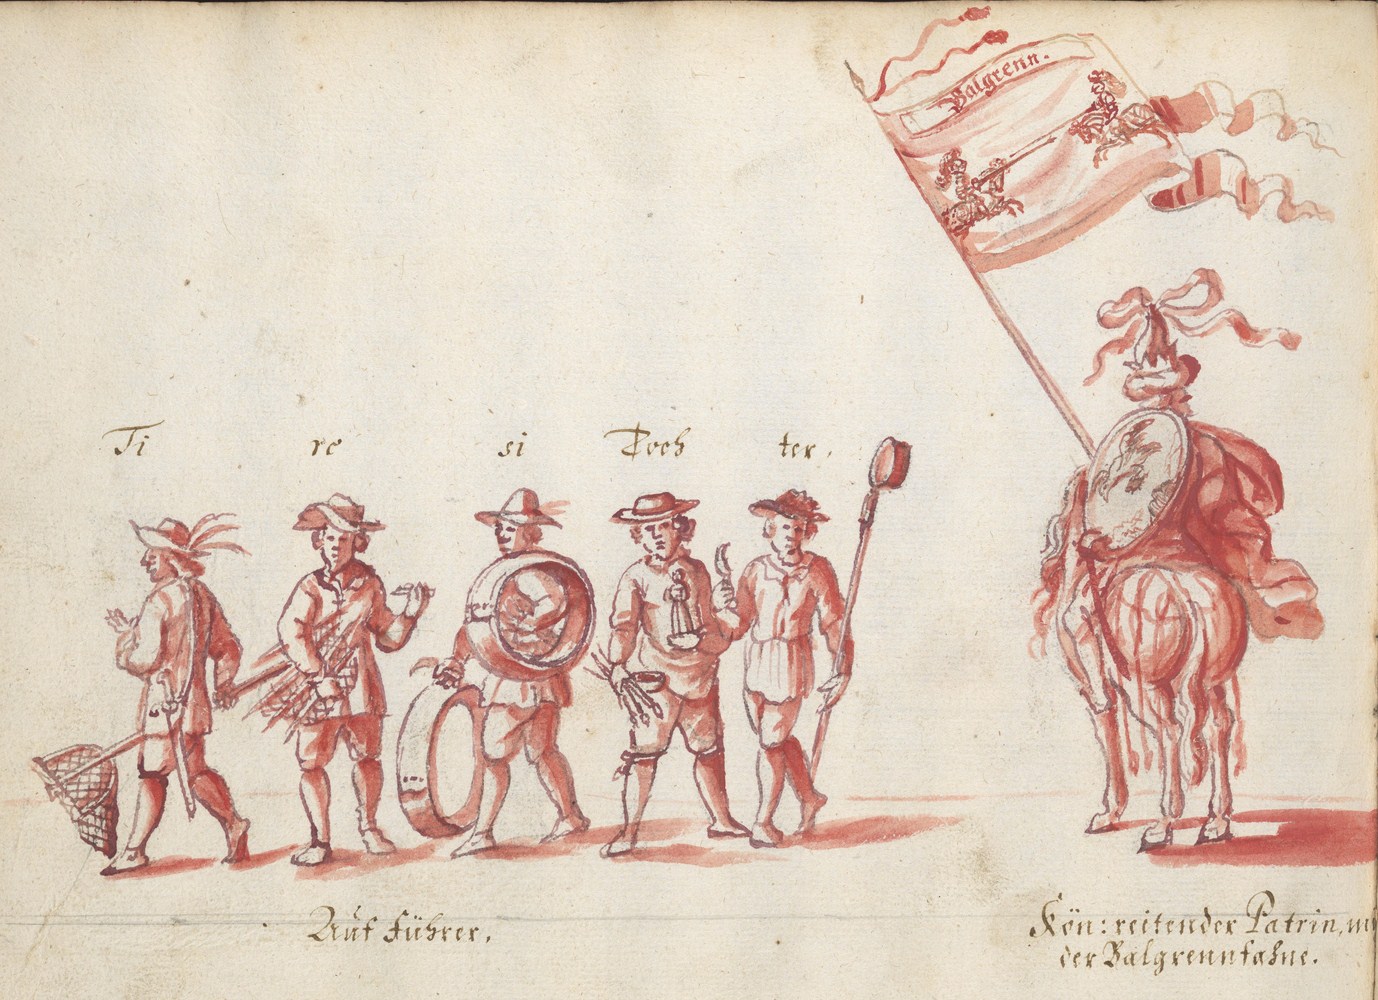 Balgrenn.
Ti re si Toch ter.
Auf führer.
Kön: reitender Patrin, m
der Balgrennfahne.